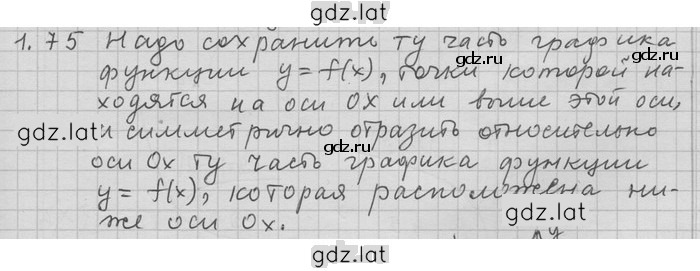 gdz.lat
1.75 Надо сохранить ту часть графика
функции y = f(x), точки которой на-
gdz.lat
ходятся на оси OX или выше этой оси,
gdz.lat
и симметрично отразить относительно
оси Ox ту часть графика функции
gdz.lat
y = f(x), которая расположена ни-
же оси Ox.
gdz.lat
gdz.lat
y